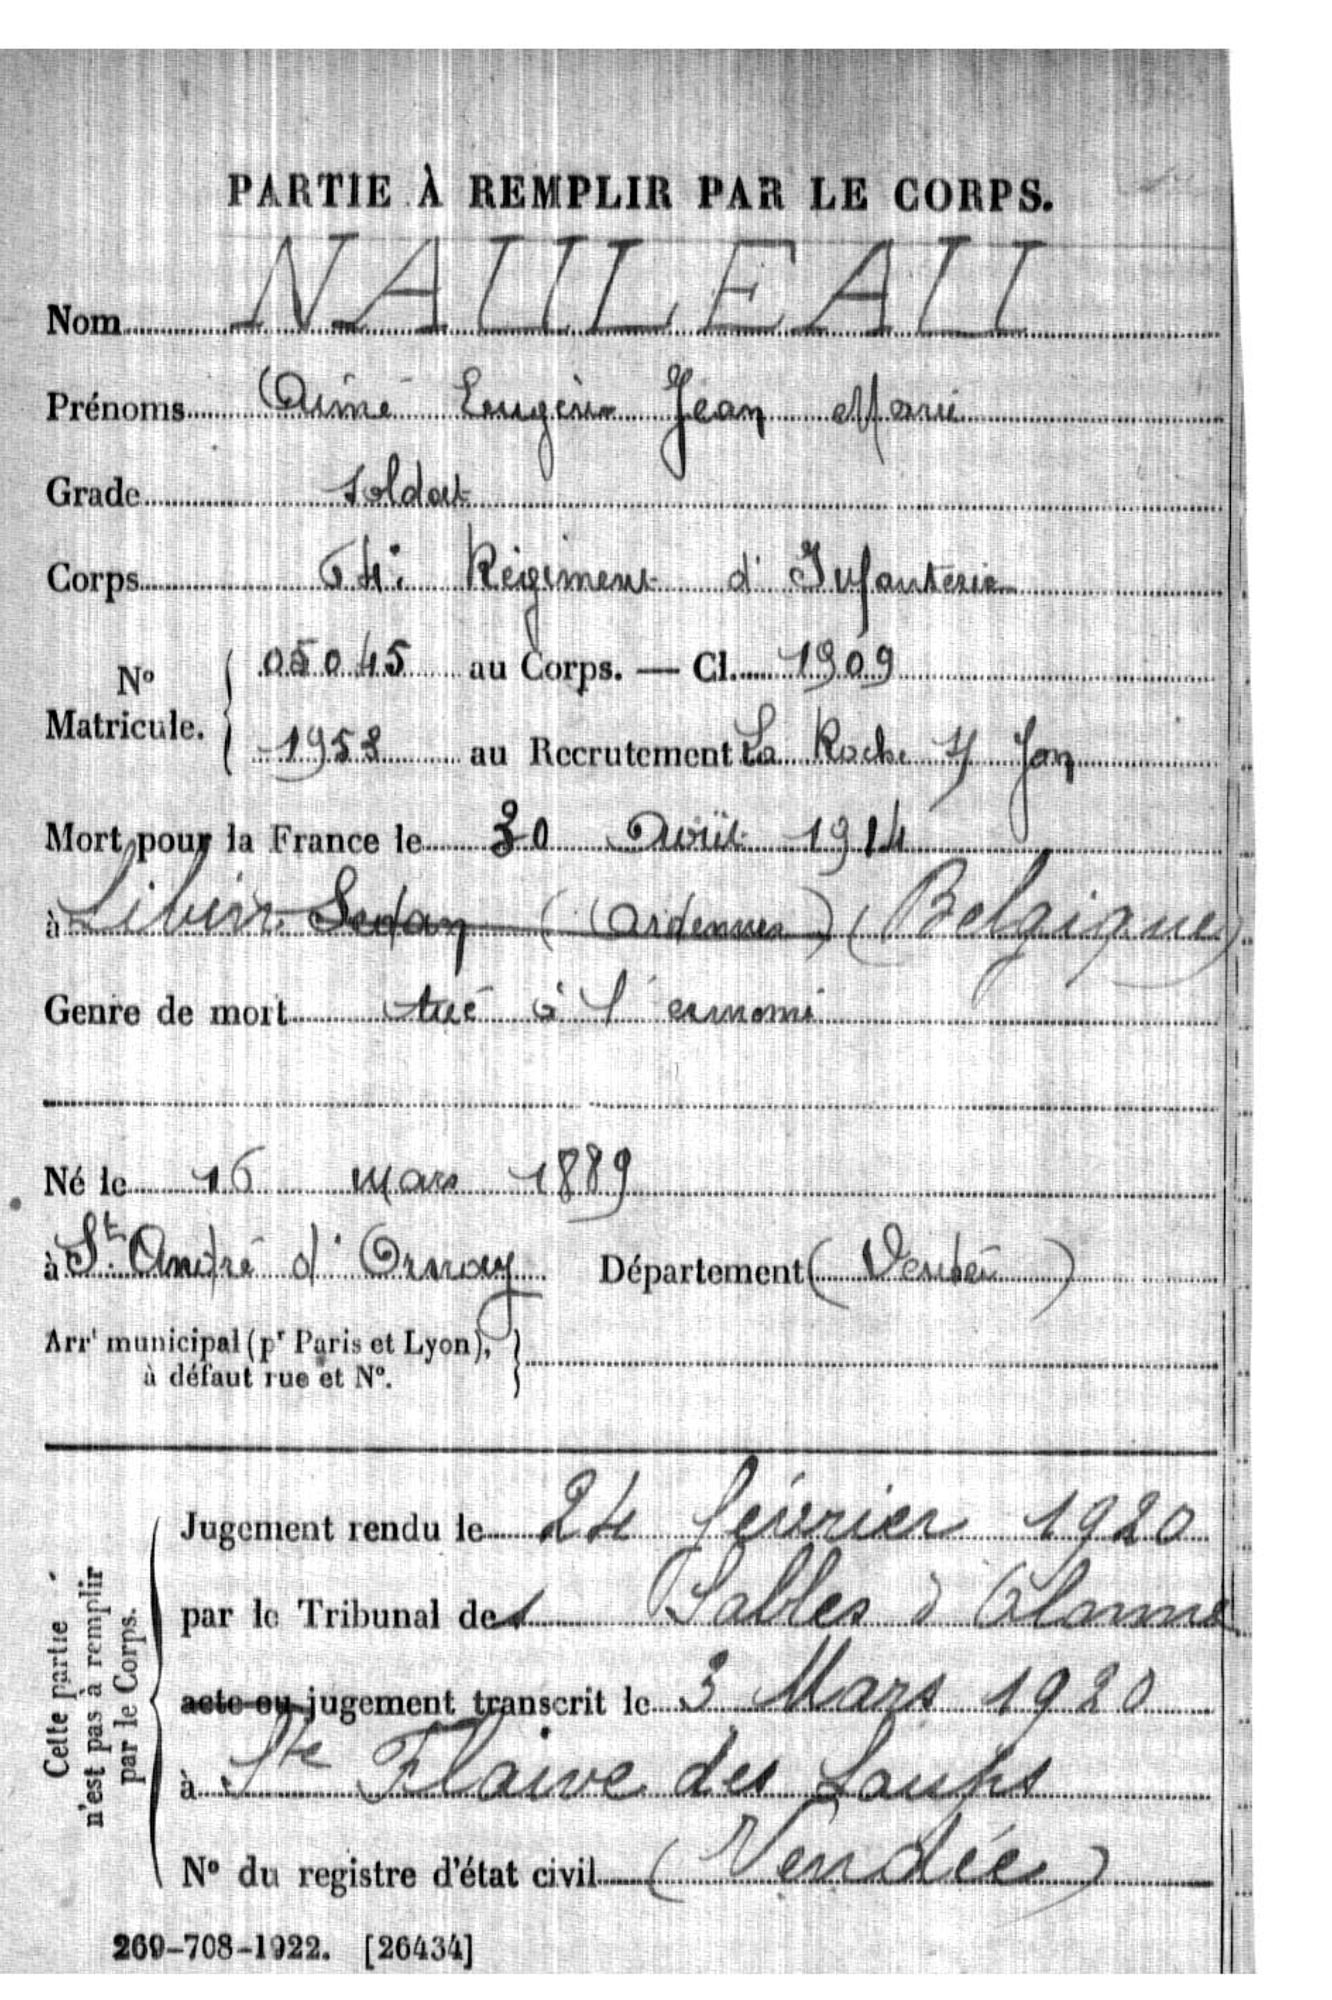 PARTIE À REMPLIR PAR LE CORPS.
Nom NAULEAU
Prénoms Aimé Eugène Jean Marie
Grade soldat
Corps 64e Régiment d'Infanterie
No Matricule. { 05045 au Corps. — Cl. 1909
1953 au Recrutement La Roche s/ Yon
Mort pour la France le 30 Août 1914
à Libin Sedan (Ardennes) (Belgique)
Genre de mort tué à l'ennemi
Né le 16 mars 1889
à St. André d'Ornay Département (Vendée)
Arrt municipal (pr Paris et Lyon), }
à défaut rue et No.
Cette partie n'est pas à remplir par le Corps.
Jugement rendu le 24 février 1920
par le Tribunal des Sables d'Olonne
acte ou jugement transcrit le 3 Mars 1920
à Ste Flaive des Loups
No du registre d'état civil (Vendée)
269-708-1922. [26434]